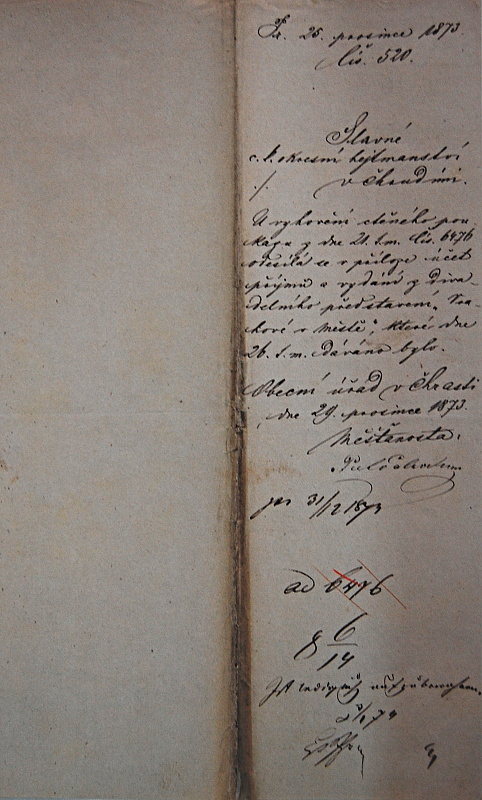 Pr. 25. prosince 1873.
Čís. 520.
Slavné
c. k. okresní hejtmanství
./. v Chrudimi.
U vyhovění ctěného pou-
kazu z dne 21. t. m. čís. 6476
odesílá se v příloze účet
příjmů a vydání z diva-
delního představení „Sra-
kové v městě“, které dne
26. t. m. dáváno bylo.
Obecní úřad v Chrasti
dne 29. prosince 1873.
Měšťanosta:
31/12 1873
ad 6476
6
14